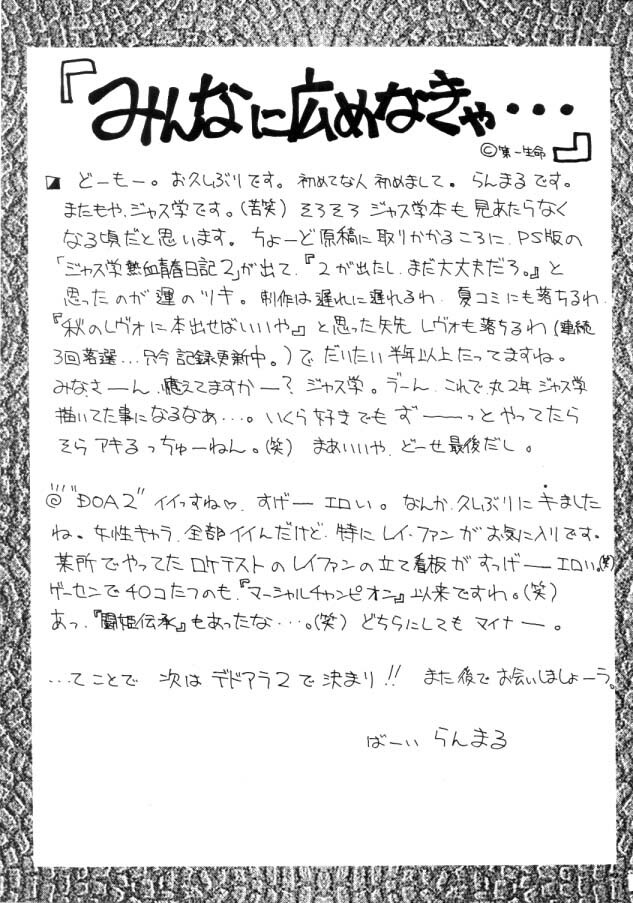 『みんなに広めなきゃ・・・』
©第一生命
どーもー。お久しぶりです。初めてな人初めまして。らんまるです。
またもや、ジャス学です。(苦笑)そろそろジャス学本も見あたらなく
なる頃だと思います。ちょーど原稿に取りかかるころに、PS版の
「ジャス学熱血青春日記2」が出て、『2が出たし、まだ大丈夫だろ。』と
思ったのが運のツキ。制作は遅れに遅れるわ、夏コミにも落ちるわ、
『秋のレヴォに本出せばいいや』と思った矢先レヴォも落ちるわ(連続
3回落選…只今記録更新中。)でだいたい半年以上たってますね。
みなさーん、憶えてますかー?ジャス学。うーん、これで、丸2年ジャス学
描いてた事になるなあ…。いくら好きでもずーーーっとやってたら
そらアキるっちゅーねん。(笑)まあいいや、どーせ最後だし。
@"DOA2"イイっすね♡、すげーエロい。なんか、久しぶりにキました
ね。女性キャラ、全部イイんだけど、特にレイ・ファンがお気に入りです。
某所でやってたロケテストのレイファンの立て看板がすっげーエロい。(笑)
ゲーセンで40コたつのも、『マーシャルチャンピオン』以来ですわ。(笑)
あっ、『闘姫伝承』もあったな・・・。(笑)どちらにしてもマイナー。
…てことで 次はデドアラ2で決まり!! また後でお会いしましょーう。
ばーい らんまる